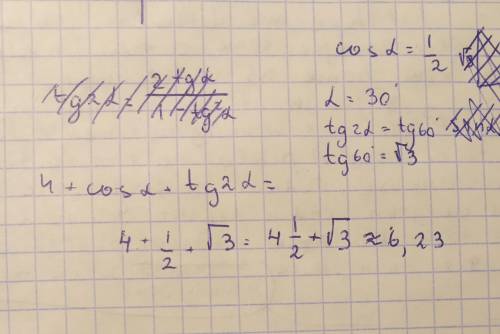 cos α = 1/2
α = 30°
tg 2α = tg 60°
tg 60° = √3
4 + cos α + tg 2α =
4 + 1/2 + √3 = 4 1/2 + √3 ≈ 6,23